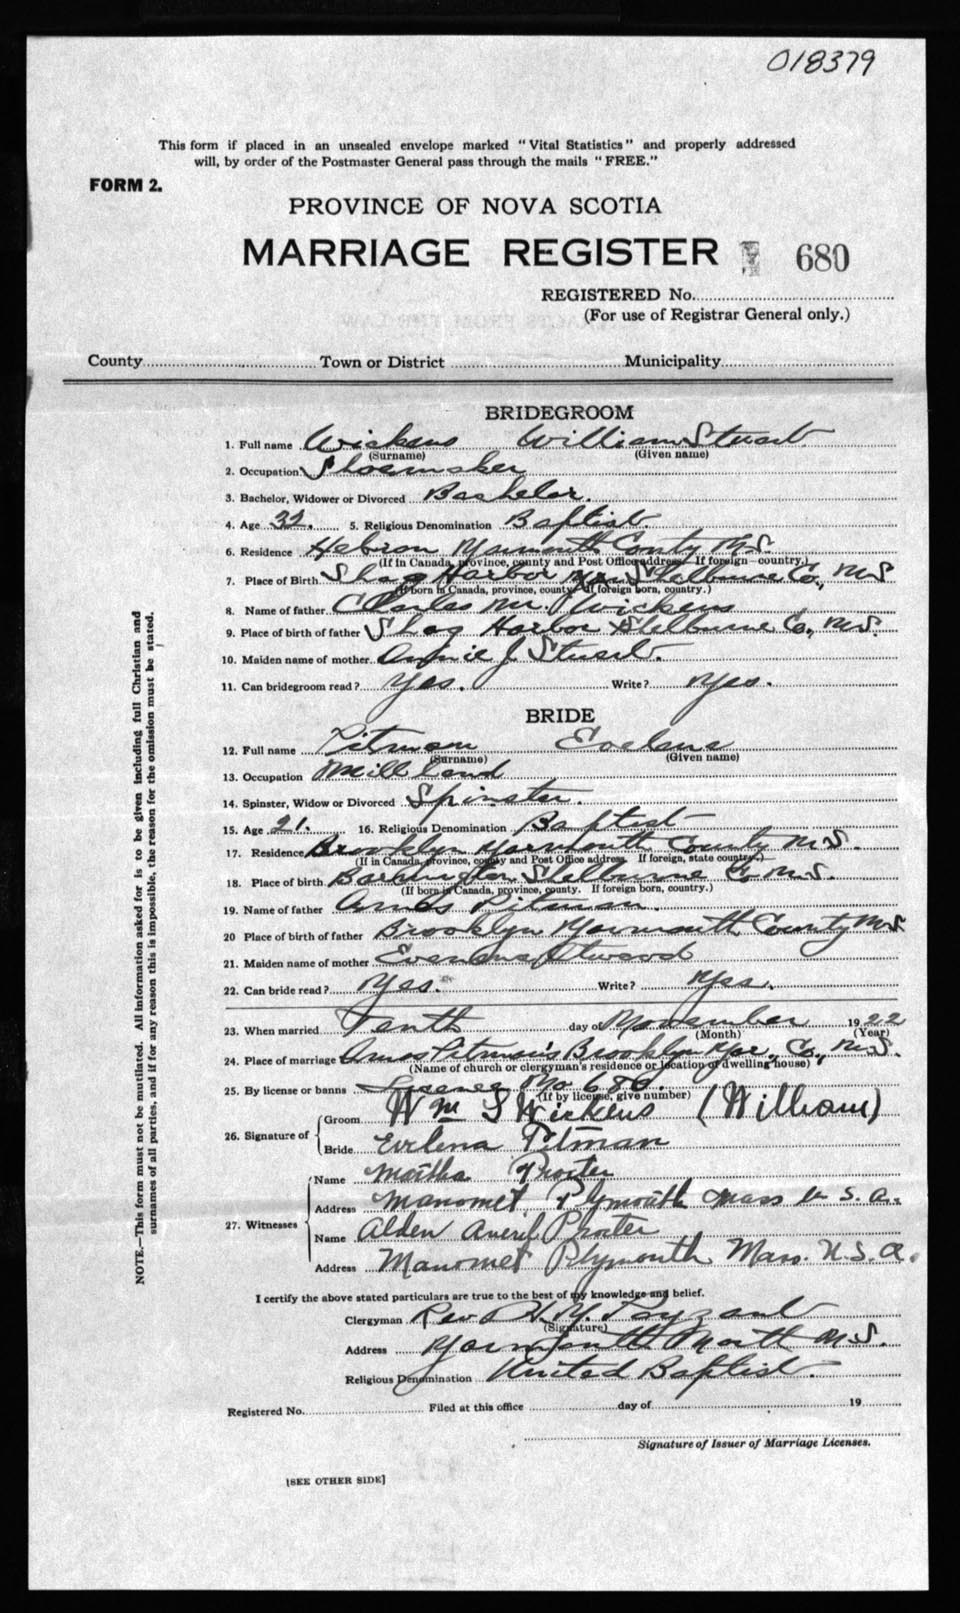 018379
This form if placed in an unsealed envelope marked "Vital Statistics" and properly addressed
will, by order of the Postmaster General pass through the mails "FREE."
FORM 2.
PROVINCE OF NOVA SCOTIA
MARRIAGE REGISTER 680
REGISTERED No.
(For use of Registrar General only.)
County Town or District Municipality
BRIDEGROOM
1. Full name Wickens William Stuart
(Surname) (Given name)
2. Occupation Shoemaker
3. Bachelor, Widower or Divorced Bachelor.
4. Age 32. 5. Religious Denomination Baptist.
6. Residence Hebron Yarmouth County N.S.
(If in Canada, province, county and Post Office address. If foreign—country.)
7. Place of Birth Shag Harbor Shelburne Co., N.S
(If born in Canada, province, county. If foreign born, country.)
8. Name of father Charles M. Wickens
9. Place of birth of father Shag Harbor Shelburne Co., N.S.
10. Maiden name of mother Annie J Stuart.
11. Can bridegroom read? Yes. Write? Yes.
BRIDE
12. Full name Pitman Evelena
(Surname) (Given name)
13. Occupation Mill hand
14. Spinster, Widow or Divorced Spinster.
15. Age 21. 16. Religious Denomination Baptist
17. Residence Brooklyn Yarmouth County N.S.
(If in Canada, province, county and Post Office address. If foreign, state country.)
18. Place of birth Barrington Shelburne Co N.S.
(If born in Canada, province, county. If foreign born, country.)
19. Name of father Amos Pitman.
20 Place of birth of father Brooklyn Yarmouth County N.S
21. Maiden name of mother Atwood
22. Can bride read? Yes. Write? Yes.
23. When married Tenth day of November 1922
(Month) (Year)
24. Place of marriage Amos Pitman's Brooklyn Yar., Co., N.S.
(Name of church or clergyman's residence or location of dwelling house)
25. By license or banns License No 680.
(If by license, give number)
26. Signature of Groom Wm S Wickens (William)
Bride Evelena Pitman
27. Witnesses Name Martha Procter
Address Manomet, Plymouth Mass U. S. A.
Name Alden Averif Procter
Address Manomet Plymouth Mass. U. S. A.
I certify the above stated particulars are true to the best of my knowledge and belief.
Clergyman Rev H. Y.
(Signature)
Address Yarmouth North N.S.
Religious Denomination United Baptist.
Registered No. Filed at this office day of 19
Signature of Issuer of Marriage Licenses.
[SEE OTHER SIDE]
NOTE.—This form must not be mutilated. All information asked for is to be given including full Christian and
surnames of all parties, and if for any reason this is impossible, the reason for the omission must be stated.